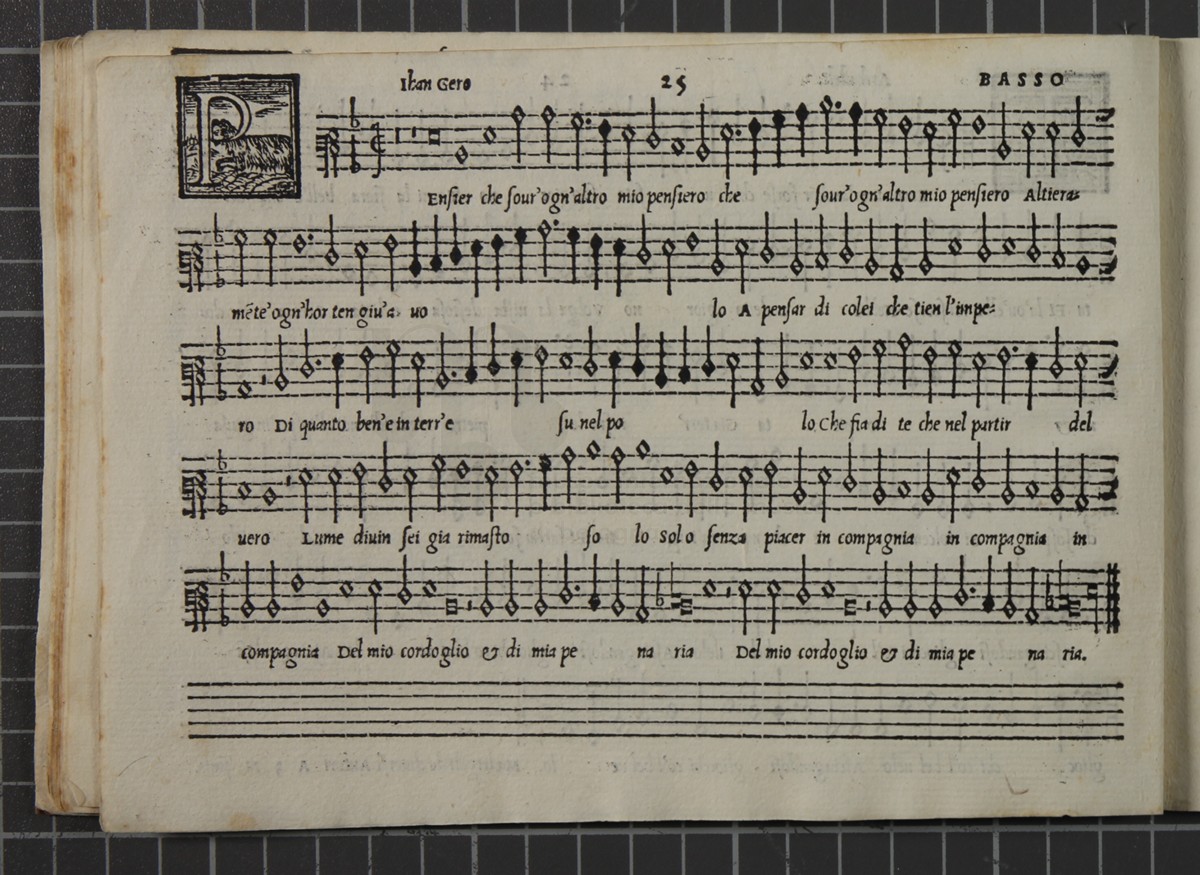 Ihan Gero 25 BASSO
P
Ensier che sour'ogn'altro mio pensiero che sour'ogn'altro mio pensiero Altiera-
mẽte'ogn'hor ten giu'a uo lo A pensar di colei che tien l'impe-
ro Di quanto ben'e in terr'e su nel po lo Che fia di te che nel partir del
uero Lume diuin sei gia rimasto so lo Solo senza piacer in compagnia in compagnia in
compagnia Del mio cordoglio & di mia pe na ria Del mio cordoglio & di mia pe na ria.